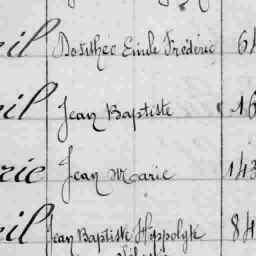 eil Dosithée Emile Frédéric 64
eil Jean Baptiste 16
rie Jean Marie 143
eil Jean Baptiste Hippolyte 84